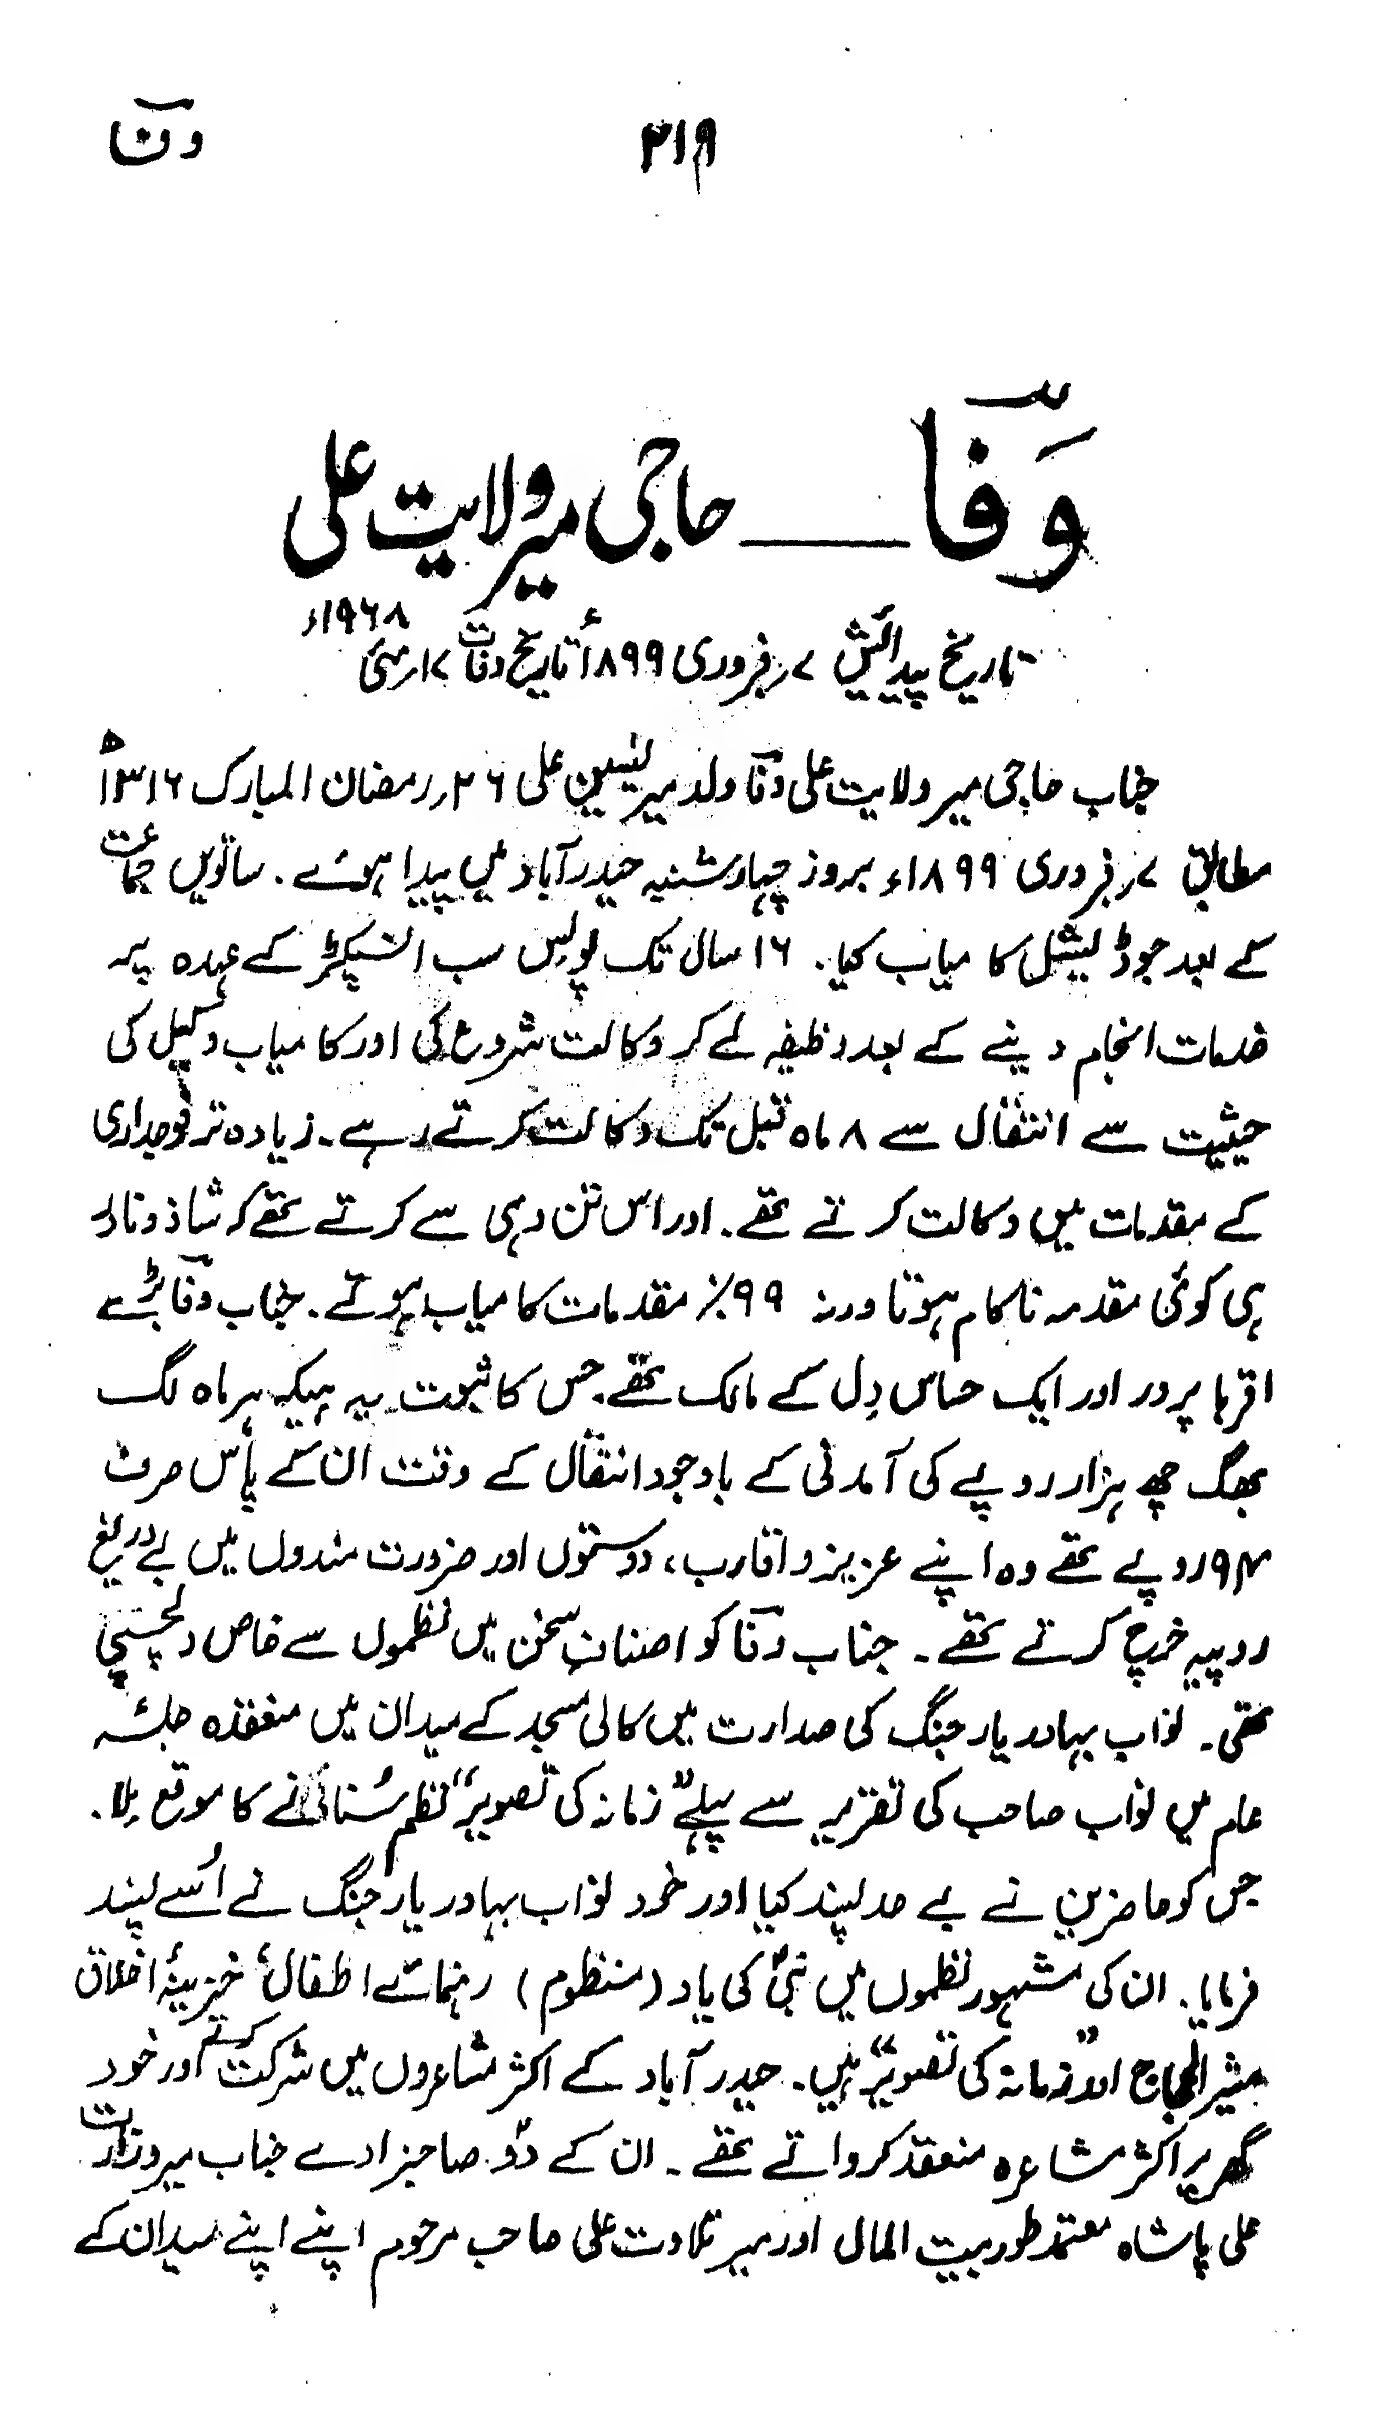 وفا ۲۱۹
وَفَا ـــــ حاجی میر ولایت علی
تاریخ پیدائش ۷ر فروری ۱۸۹۹ء تاریخ وفات ۱۷ر مئی ۱۹۶۸ء
جناب حاجی میر ولایت علی وفا ولد میر یٰسین علی ۲۶ر رمضان المبارک ۱۳۱۶ھ
مطابق ۷ر فروری ۱۸۹۹ء بروز چہارشنبہ حیدرآباد میں پیدا ہوئے۔ ساتویں جماعت
کے بعد جوڈیشل کامیاب کیا۔ ۱۶ سال تک پولیس سب انسپکٹر کے عہدہ پر
خدمات انجام دینے کے بعد وظیفہ لے کر وکالت شروع کی اور کامیاب وکیل کی
حیثیت سے انتقال سے ۸ ماہ قبل تک وکالت کرتے رہے۔ زیادہ تر فوجداری
کے مقدمات میں وکالت کرتے تھے۔ اور اس تن دہی سے کرتے تھے کہ شاذ و نادر
ہی کوئی مقدمہ ناکام ہوتا ورنہ ۹۹٪ مقدمات کامیاب ہوتے۔ جناب وفا بڑے
اقربا پرور اور ایک حساس دِل کے مالک تھے۔ جس کا ثبوت یہ ہیکہ ہر ماہ لگ
بھگ چھ ہزار روپے کی آمدنی کے باوجود انتقال کے وقت ان کے پاس صرف
۹۴ روپے تھے وہ اپنے عزیز و اقارب، دوستوں اور ضرورت مندوں میں بے دریغ
روپیہ خرچ کرتے تھے۔ جناب وفا کو اصنافِ سخن میں نظموں سے خاص دلچسپی
تھی۔ نواب بہادر یار جنگ کی صدارت میں کالی مسجد کے میدان میں منعقدہ جلسہ
عام میں نواب صاحب کی تقریر سے پہلے ”زمانہ کی تصویر“ نظم سُنانے کا موقع مِلا۔
جس کو حاضرین نے بے حد پسند کیا اور خود نواب بہادر یار جنگ نے اُسے پسند
فرمایا۔ ان کی مشہور نظموں میں نبیؐ کی یاد (منظوم) رہنمائے اطفال، خزینۂ اخلاق
مشیر الحجاج اور ”زمانہ کی تصویر“ ہیں۔ حیدرآباد کے اکثر مشاعروں میں شرکت کرتے اور خود
گھر پر اکثر مشاعرہ منعقد کرواتے تھے۔ ان کے دو صاحبزادے جناب میر وزارت
علی پاشاہ معتمد طور بیت المال اور میر تلاوت علی صاحب مرحوم اپنے اپنے میدان کے